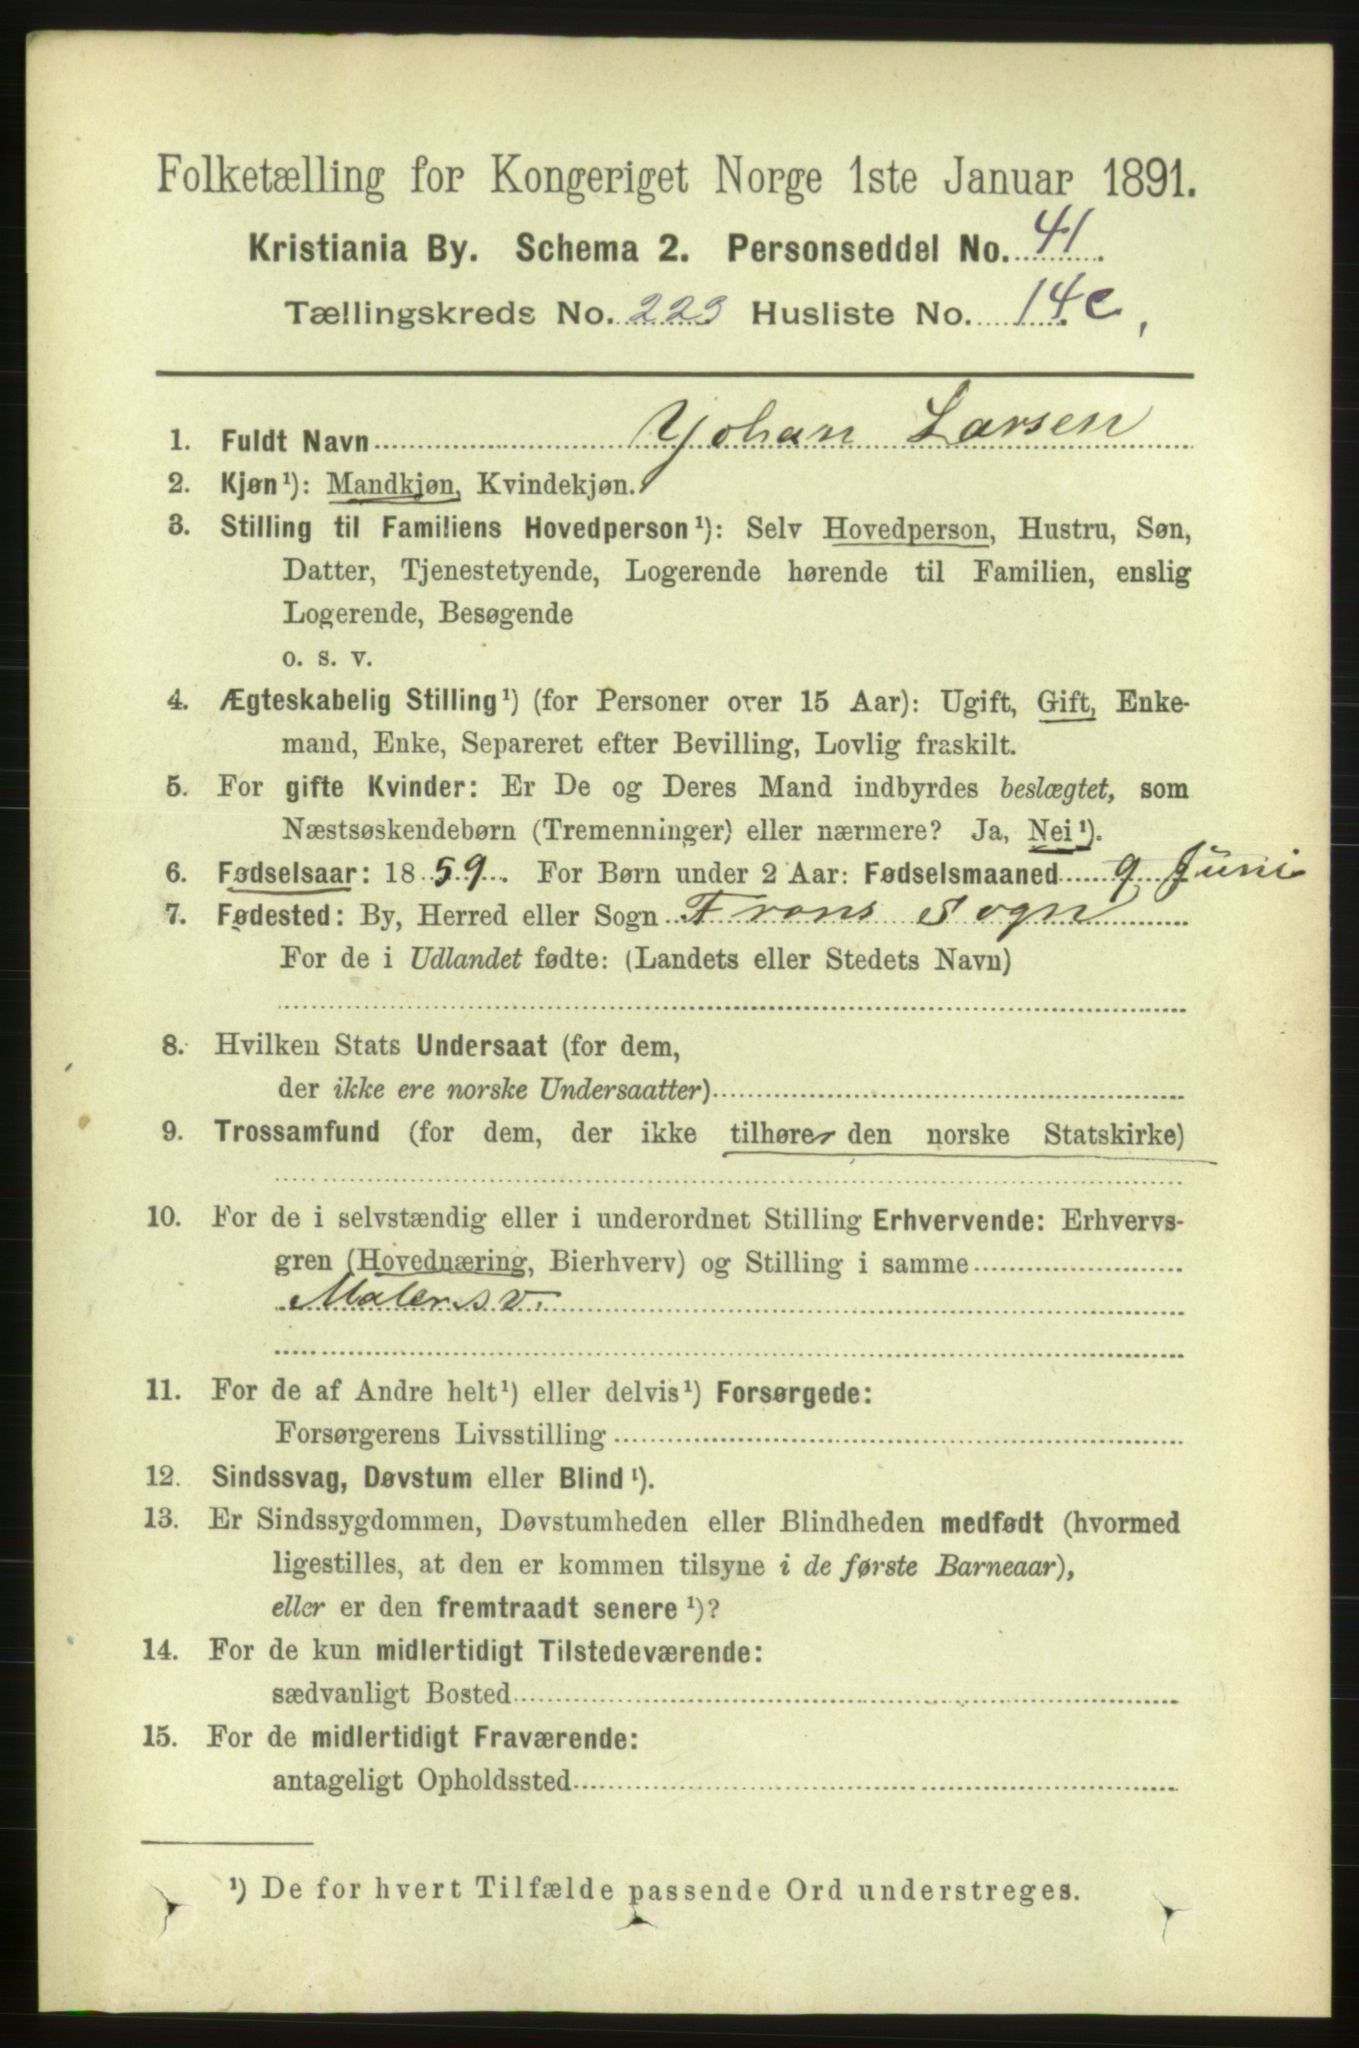 Folketælling for Kongeriget Norge 1ste Januar 1891.
Kristiania By. Schema 2. Personseddel No. 41.
Tællingskreds No. 223 Husliste No. 14c,
1. Fuldt Navn Johan Larsen
2. Kjøn¹): Mandkjøn, Kvindekjøn.
3. Stilling til Familiens Hovedperson¹): Selv Hovedperson, Hustru, Søn,
Datter, Tjenestetyende, Logerende hørende til Familien, enslig
Logerende, Besøgende
o. s. v.
4. Ægteskabelig Stilling¹) (for Personer over 15 Aar): Ugift, Gift, Enke-
mand, Enke, Separeret efter Bevilling, Lovlig fraskilt.
5. For gifte Kvinder: Er De og Deres Mand indbyrdes beslægtet, som
Næstsøskendebørn (Tremenninger) eller nærmere? Ja, Nei¹).
6. Fødselsaar: 1859. For Børn under 2 Aar: Fødselsmaaned 9 Juni
7. Fødested: By, Herred eller Sogn Frons Sogn
For de i Udlandet fødte: (Landets eller Stedets Navn)
8. Hvilken Stats Undersaat (for dem,
der ikke ere norske Undersaatter)
9. Trossamfund (for dem, der ikke tilhører den norske Statskirke)
10. For de i selvstændig eller i underordnet Stilling Erhvervende: Erhvervs-
gren (Hovednæring, Bierhverv) og Stilling i samme
Maler sv.
11. For de af Andre helt¹) eller delvis¹) Forsørgede:
Forsørgerens Livsstilling
12. Sindssvag, Døvstum eller Blind¹).
13. Er Sindssygdommen, Døvstumheden eller Blindheden medfødt (hvormed
ligestilles, at den er kommen tilsyne i de første Barneaar),
eller er den fremtraadt senere¹)?
14. For de kun midlertidigt Tilstedeværende:
sædvanligt Bosted
15. For de midlertidigt Fraværende:
antageligt Opholdssted
¹) De for hvert Tilfælde passende Ord understreges.